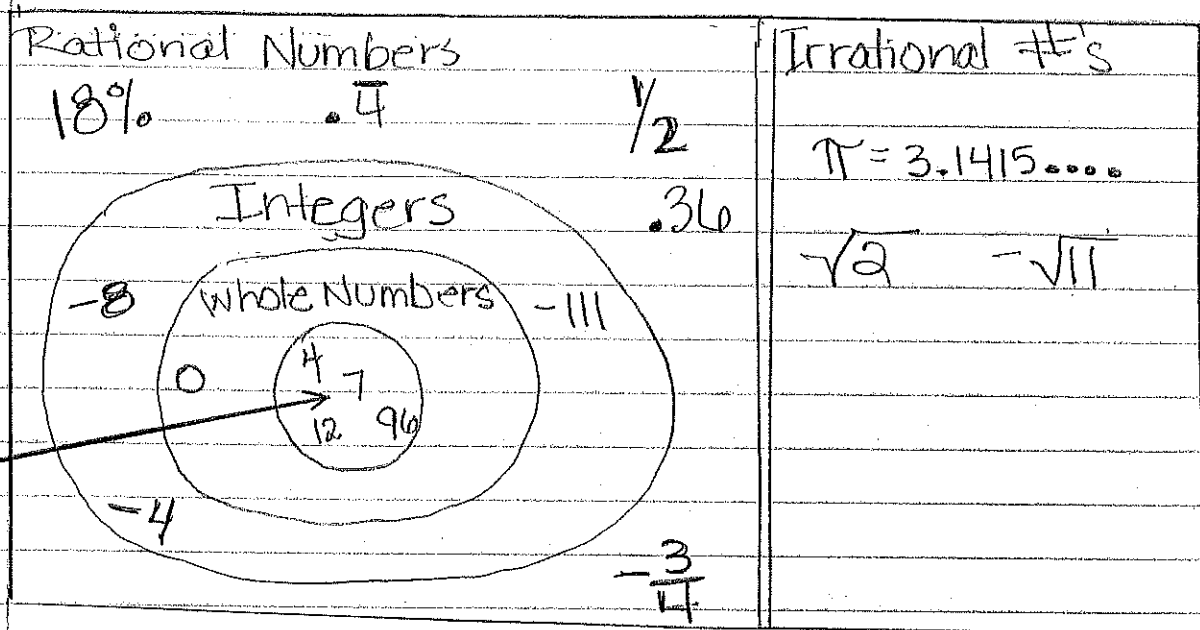 Rational Numbers
18% .4̅ 1/2
Integers
.36
-8 Whole Numbers -111
0 4 7
12 96
-4
-3/4
Irrational #'s
π = 3.1415....
√2 -√11